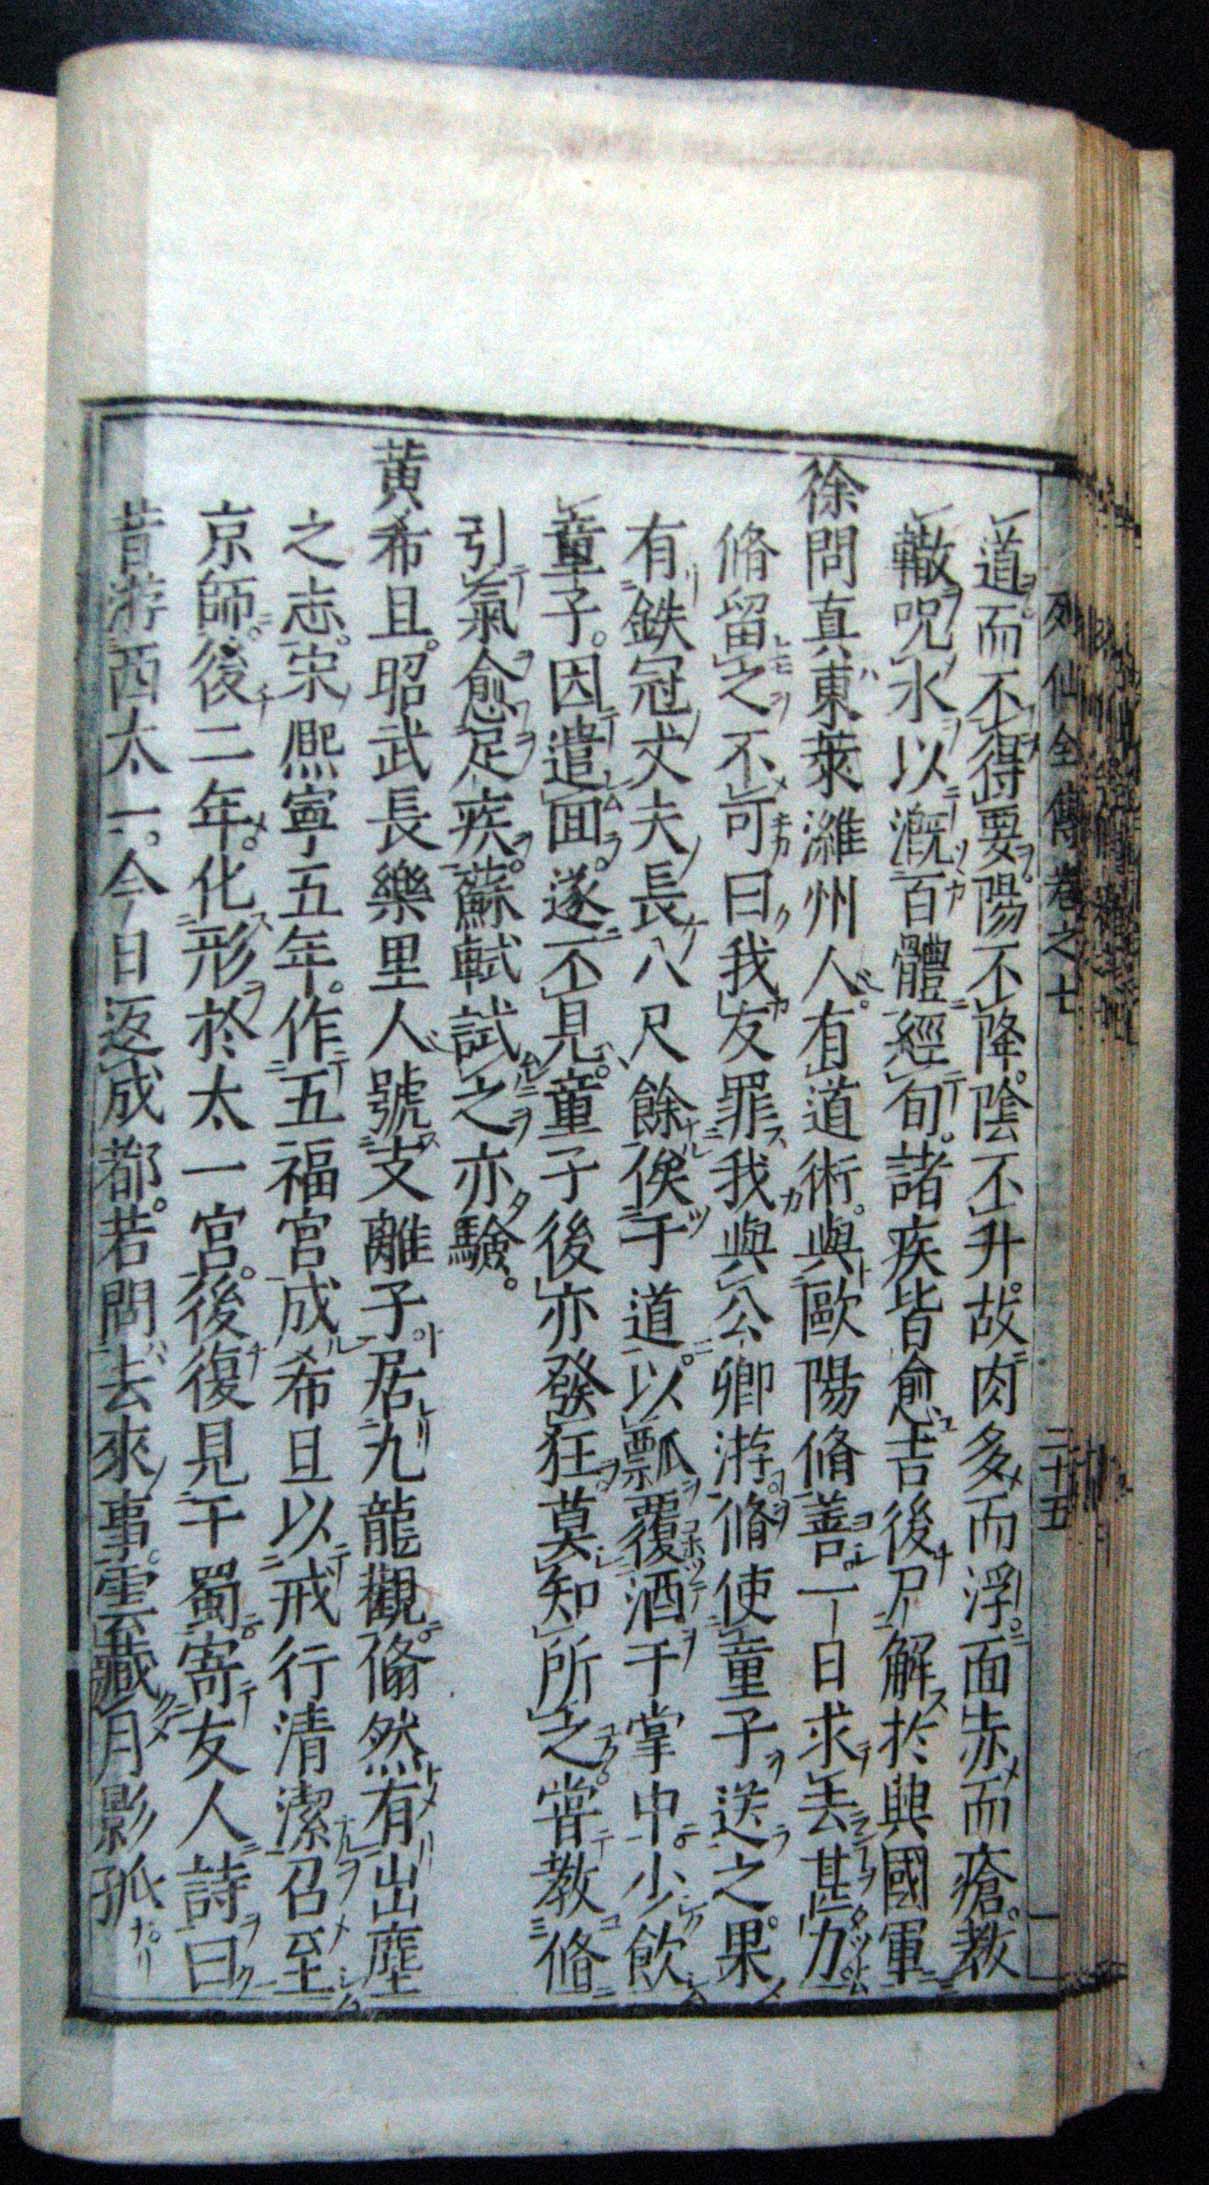 列仙全傳卷之七 二十五
道而不得要陽不降陰不升故肉多而浮面赤而瘡教
轍呪水以漑百體經旬諸疾皆愈吉後尸解於興國軍
徐問真東萊濰州人有道術與歐陽脩善一日求去甚力
脩留之不可曰我友罪我與公卿游脩使童子送之果
有鉄冠丈夫長八尺餘俟于道以瓢覆酒于掌中少飲
童子因遣面遂不見童子後亦發狂莫知所之嘗教脩
引氣愈足疾蘇軾試之亦驗
黄希旦昭武長樂里人號支離子居九龍觀翛然有出塵
之志宋熈寧五年作五福宮成希旦以戒行清潔召至
京師後二年化形於太一宮後復見于蜀寄友人詩曰
昔游西太一今日返成都若問去來事雲藏月影孤